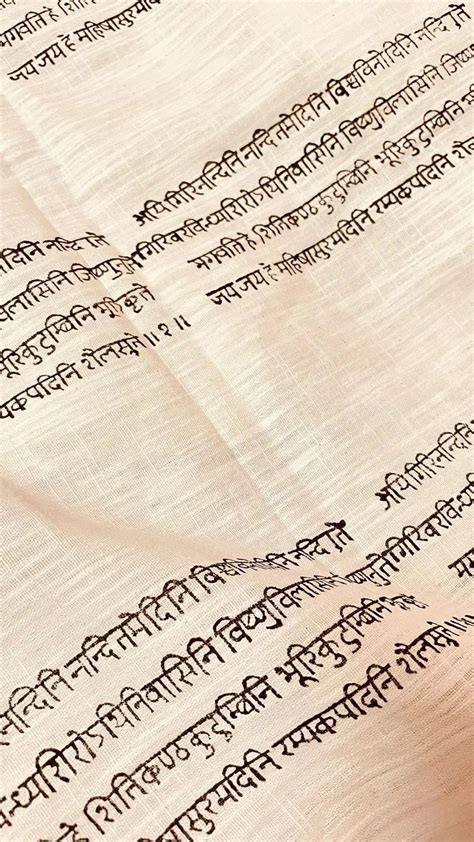 भगवति हे शिति
जय जय हे महिषासुरमर्दिनि
अयि गिरिनन्दिनि नन्दितमेदिनि विश्वविनोदिनि नन्दिनुते
गिरिवरविन्ध्यशिरोऽधिनिवासिनि विष्णुविलासिनि जिष्णु
भगवति हे शितिकण्ठकुटुम्बिनि भूरिकुटुम्बिनि
जय जय हे महिषासुरमर्दिनि रम्यकपर्दिनि शैल
दिनि नन्दिनुते
विलासिनि जिष्णुनुते
भूरिकुटुम्बिनि भूरिकृते
म्यकपर्दिनि शैलसुते ॥ १ ॥
अयि गिरिनन्दिनि
गिरिवरविन्ध्य
नन्दिनि नन्दितमेदिनि विश्वविनोदिनि नन्दिनुते
न्ध्यशिरोऽधिनिवासिनि विष्णुविलासिनि जिष्णुनुते
हे शितिकण्ठकुटुम्बिनि भूरिकुटुम्बिनि
महिषासुरमर्दिनि रम्यकपर्दिनि शैलसुते ॥